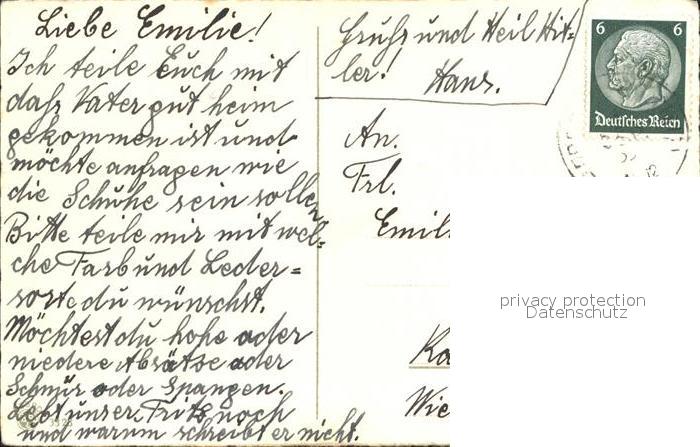 Liebe Emilie!
Ich teile Euch mit
dahs Vater gut heim
gekommen ist und
möchte anfragen wie
die Schuhe sein sollen
Bitte teile mir mit wel-
che Farb und Leder=
sorte du wünschst.
Möchtest du hohe oder
niedere Absätse oder
Schnür oder Spangen.
Lebt unser Fritz noch
und warum schreibt er nicht.
Gruhs und Heil Hit-
ler!
Hans.
6 6
Deutsches Reich
An.
Frl.
Emil
privacy protection
Datenschutz
Wie